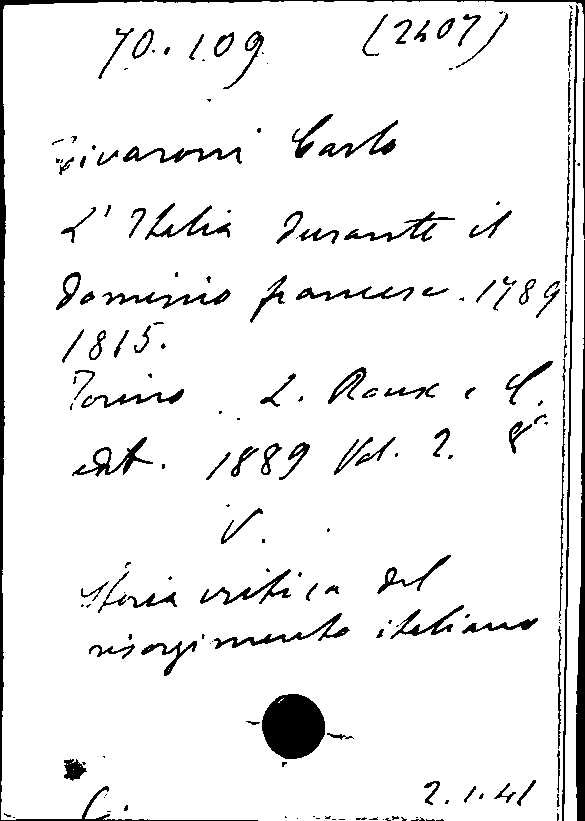 70.109 (2407)
Tivaroni Carlo
L'Italia durante il
dominio francese. 1789
1815.
Torino. L. Roux e C.
edit. 1889 Vol. 2. 8°
V.
Storia critica del
risorgimento italiano
2.1.41